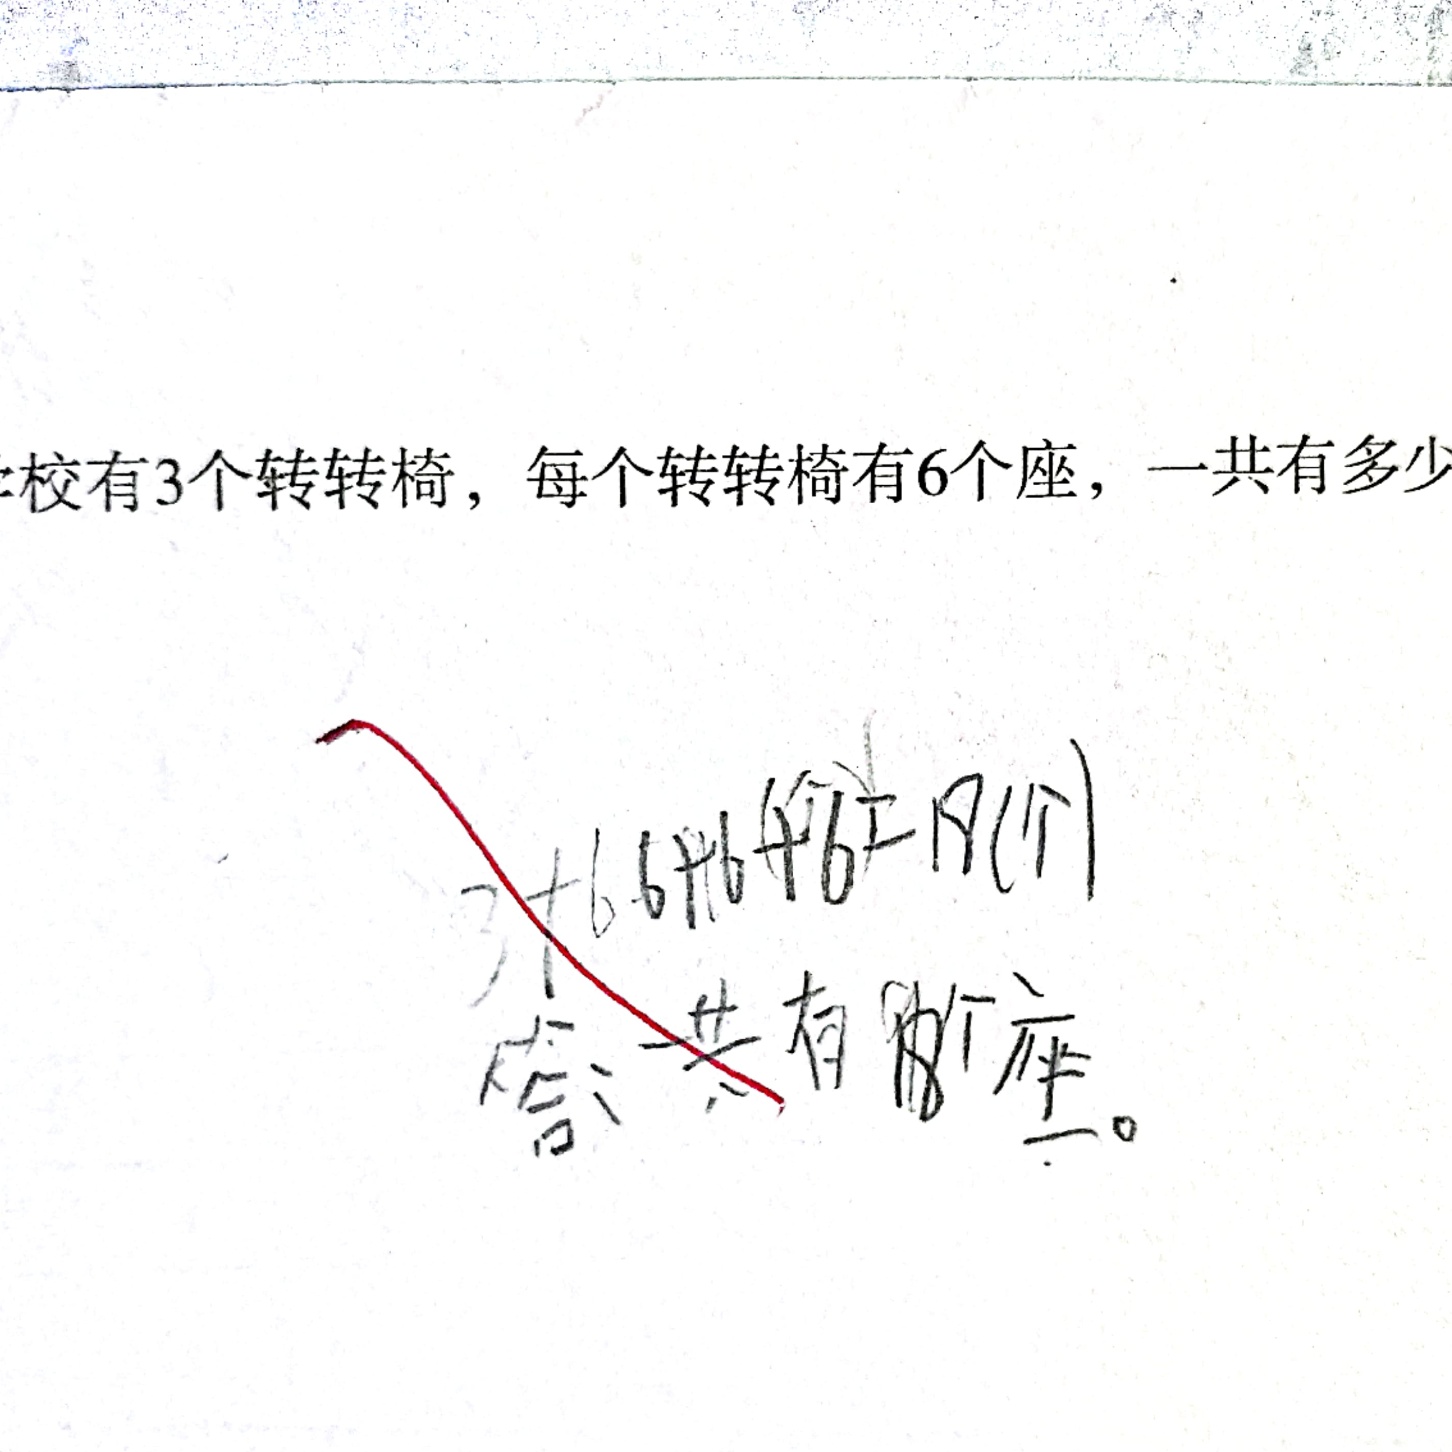 校有3个转转椅，每个转转椅有6个座，一共有多少
6+6+6=18(个)
答：一共有18个座。